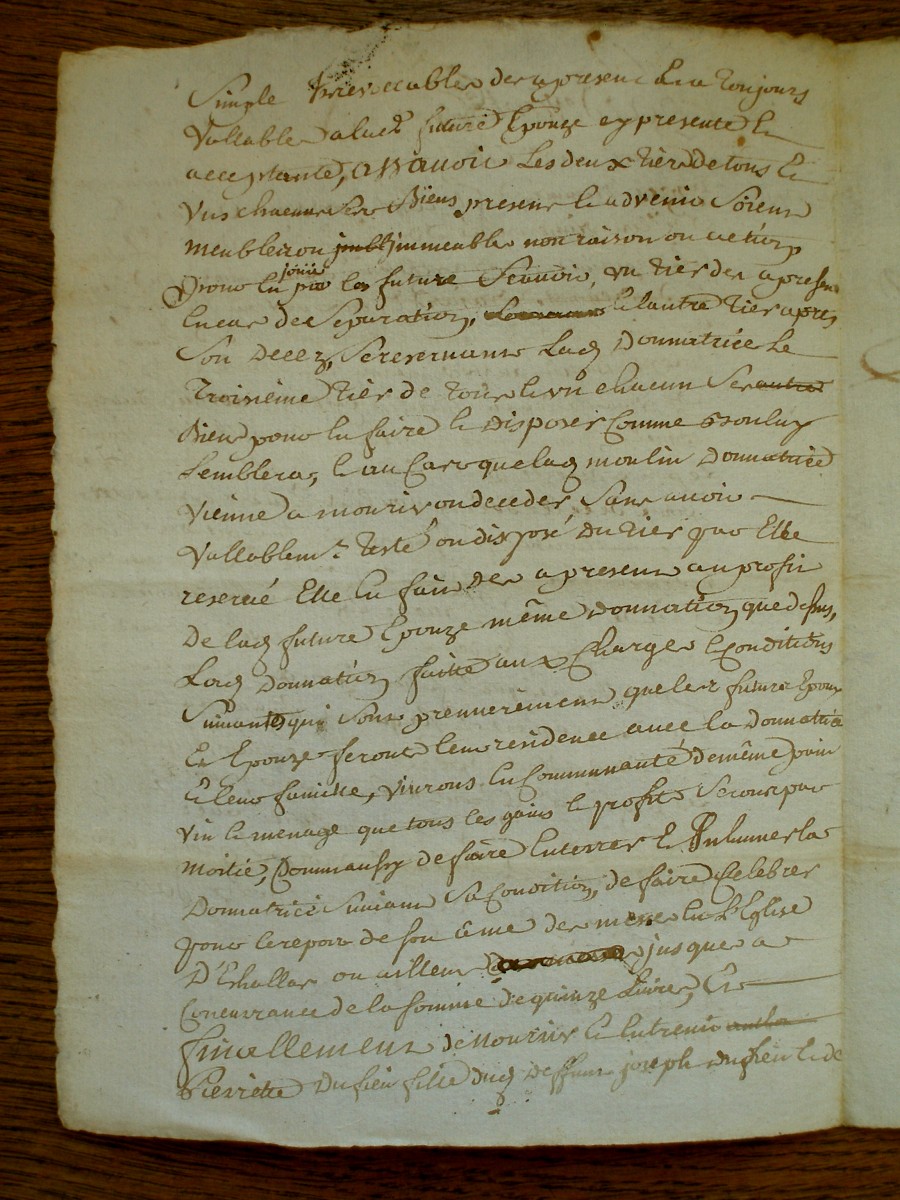 Simple Irrevocable des apresent Et a toujours
Vallable a lad. future Epouze cy presente Et
acceptante, assavoir Les deux tiers de tous Et
Uns chacuns Ses Biens present Et advenir Soient
meubles ou immeubles non raison ou action
pour En jouir par les future Scavoir, un tier des apresent
En cas de Separation, Et lautre tier apres
Son Decez, Se reservant Lad. Donnatrice Le
Troisième tier de tous Et un chacun Ses
Biens pour En faire Et Disposer Comme
Semblera, Et au Cas que lad. moulin Donnatrice
Vienne a mourir ou deceder Sans avoir
Vallablemt. testé ou disposé Du tier par Elle
reservé Elle En fait des apresent au profit
De lad. future Epouze même Donnation que dessus,
Lad. Donnation faitte aux Charges Et Conditions
Suivantes qui Sont premierement que les futurs Epoux
Et Epouze feront leur residence avec la Donnatrice
Et leur famille, vivrons En Communauté de même pain
Vin Et menage que tous les gains Et profits Seront par
moitié, Comm'aussy de faire Enterrer Et Inhumer la
Donnatrice Suivant Sa Condition, de faire Celebrer
pour le repos de son âme des messe En L'Eglise
D'Echallas ou ailleurs jusques a
Concurrance de la somme de quinze Livres, Et
finallement de Nourrir Et Entrenir
Pierrette Dufieu fille dud. Deffunt joseph Dufieu Et de